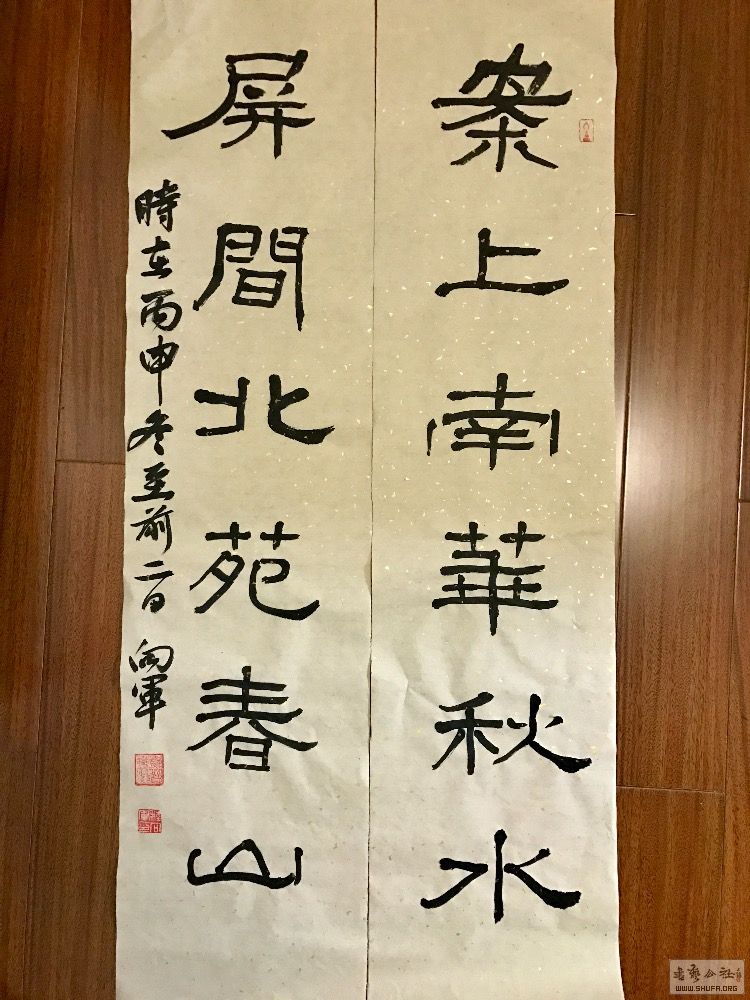 案上南華秋水
屏間北苑春山
時在丙申冬至前二日 向軍
書法公社
WWW.SHUFA.ORG